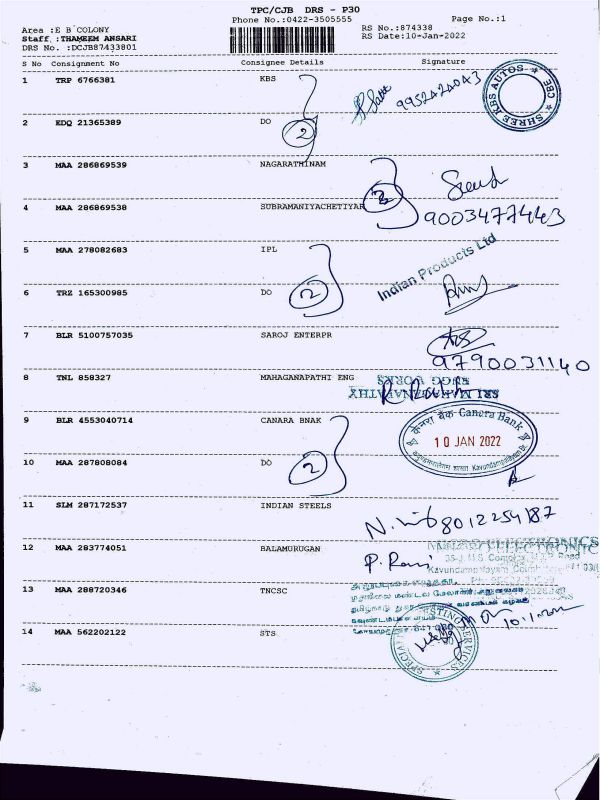 TPC/CJB DRS - P30
Phone No.:0422-3505555
Page No.:1
Area :E B COLONY
RS No.:874338
Staff :THAMEEM ANSARI
RS Date:10-Jan-2022
DRS No. :DCJB87433801
S No Consignment No Consignee Details Signature
1 TRP 6766381 KBS
9952424043
SHREE KBS AUTOS CBE
2 EDQ 21365389 DO
2
3 MAA 286869539 NAGARATHINAM
4 MAA 286869538 SUBRAMANIYACHETIYAR
2
9003477443
5 MAA 278082683 IPL
Indian Products Ltd
6 TRZ 165300985 DO
2
7 BLR 5100757035 SAROJ ENTERPR
9790031140
8 TNL 858327 MAHAGANAPATHI ENG
SRI MAHAGANAPATHY
ENGG WORKS
9 BLR 4553040714 CANARA BNAK
केनरा बैंक Canara Bank
10 JAN 2022
10 MAA 287808084 DO
2
11 SLM 287172537 INDIAN STEELS
8012254187
12 MAA 283774051 BALAMURUGAN
P. Ravi
ELECTRONICS
13 MAA 288720346 TNCSC
14 MAA 562202122 STS
TESTING SERVICES